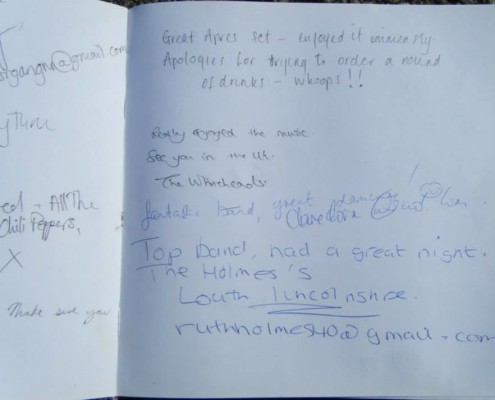 organgnn@gmail.com
ythm
ed - All The
Chili Peppers,
X
Make sure you
Great Apres set - enjoyed it immensly
Apologies for trying to order a round
of drinks - whoops!!
Really enjoyed the music.
See you in the UK.
The Whiteheads.
fantastic band, great dancing!
Top band, had a great night.
The Holmes's
Louth Lincolnshire.
ruthholmes40@gmail.com